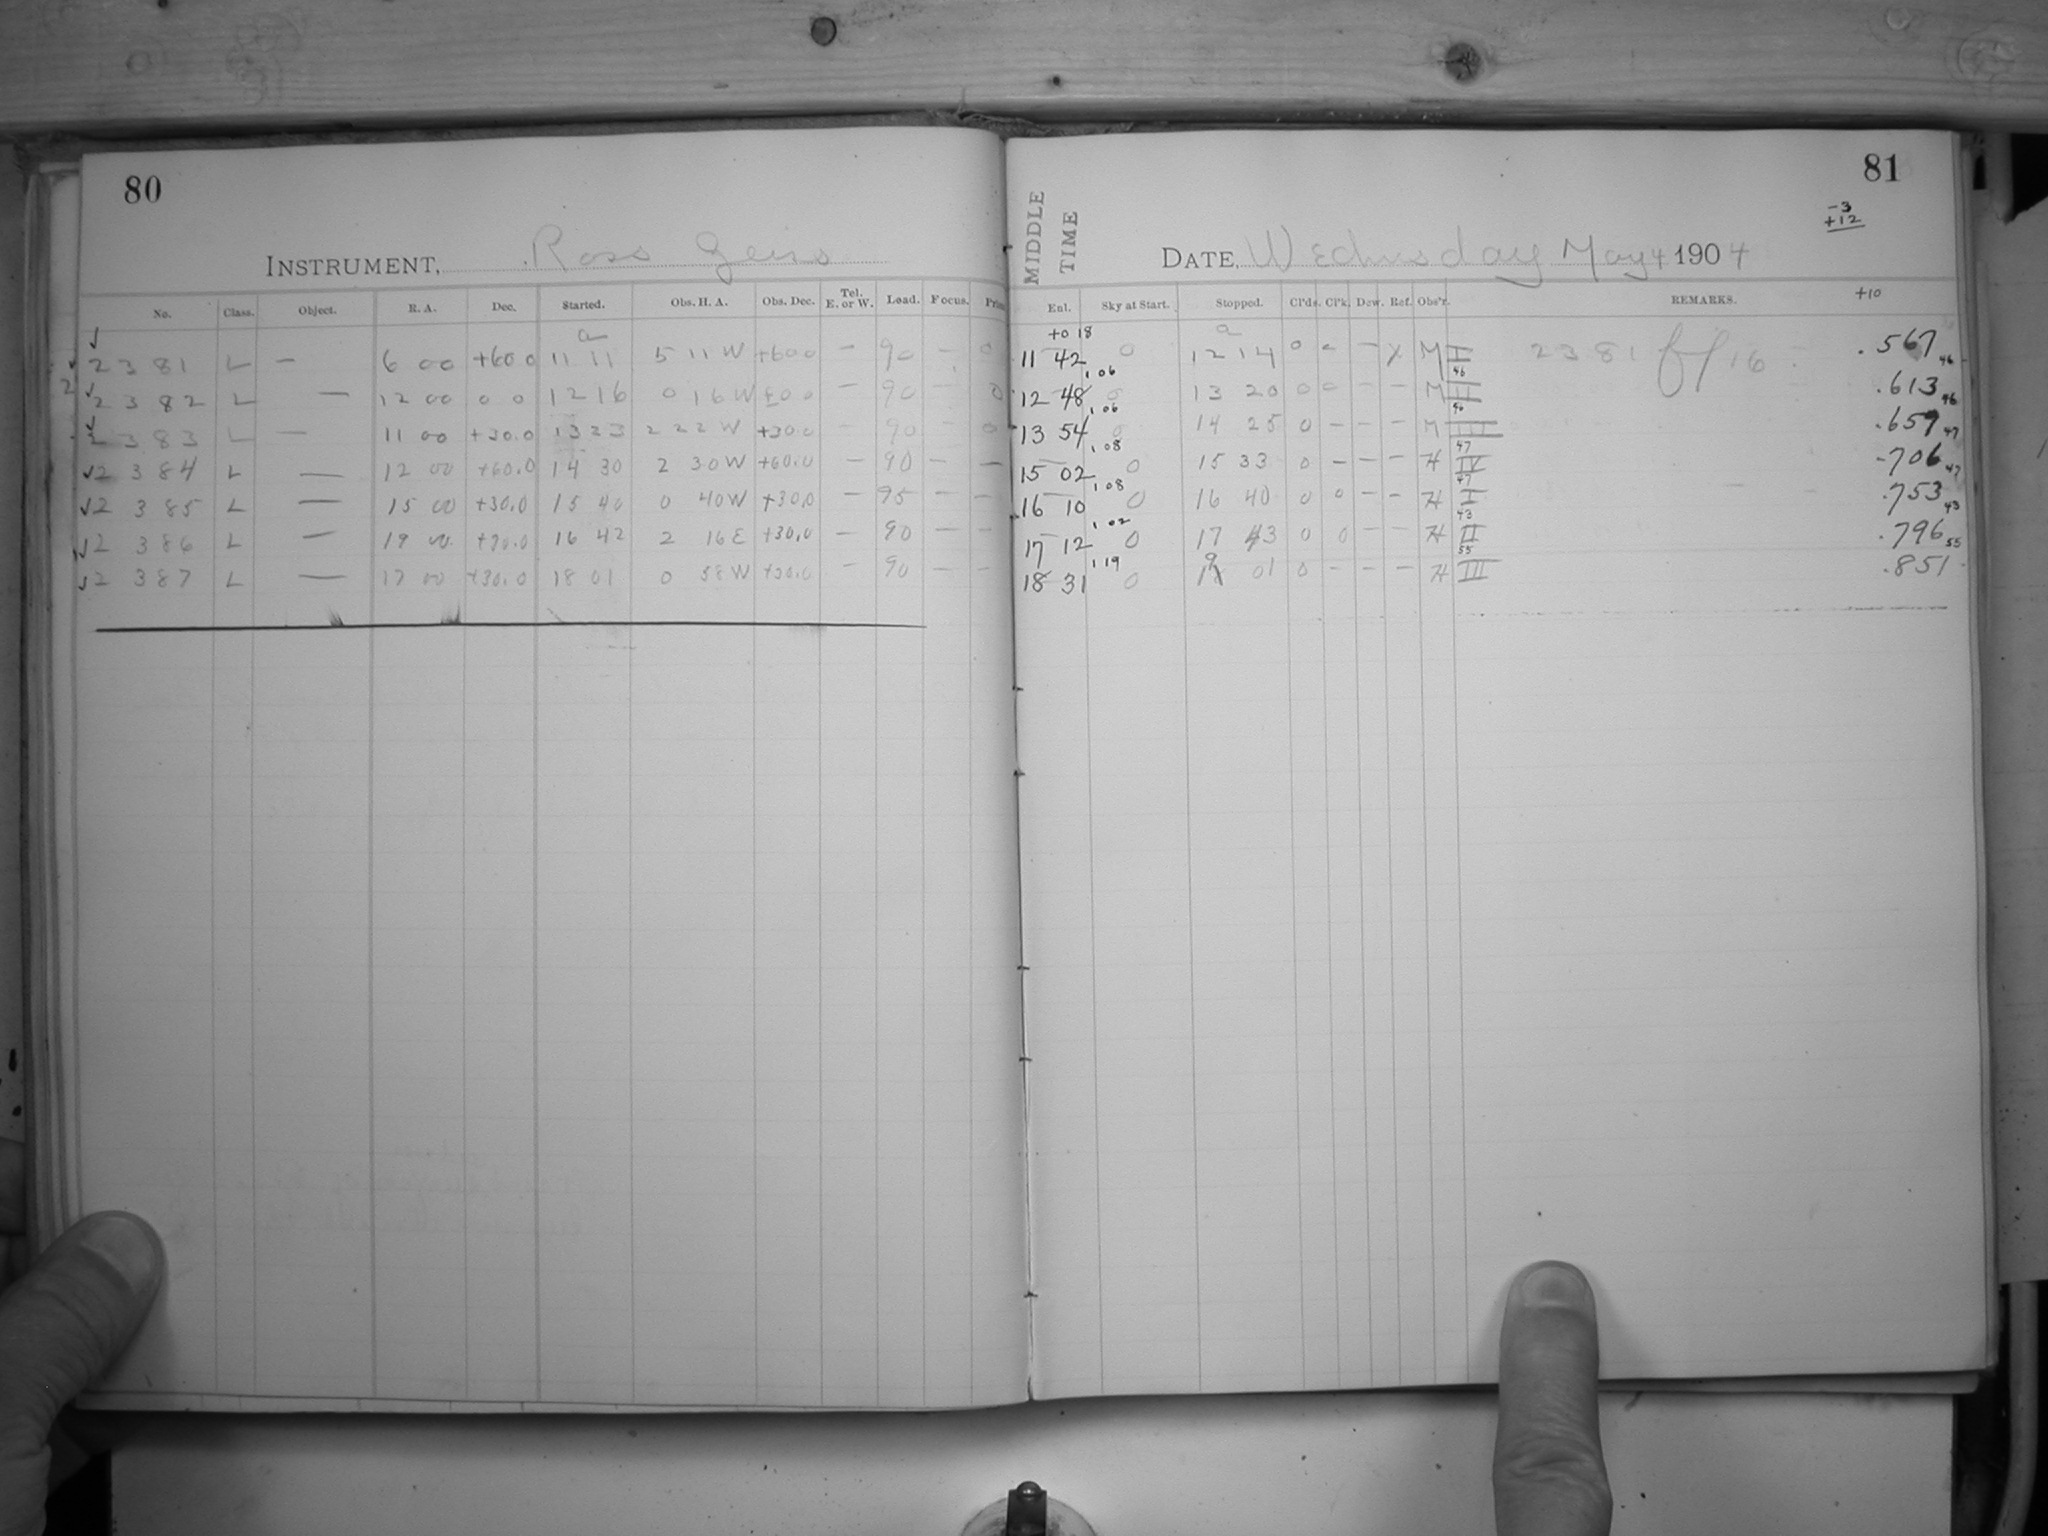 80
INSTRUMENT, Ross Zeiss
No. Class. Object. R. A. Dec. Started. Obs. H. A. Obs. Dec. Tel. E. or W. Load. Focus.
a
2381 L — 6 00 +60 0 11 11 5 11 W +60 0 — 90 — 0
2382 L — 12 00 0 0 12 16 0 16 W 90 — 0
2383 L — 11 00 +30.0 13 23 2 22 W +30 0 — 90 — 0
2384 L — 12 00 +60.0 14 30 2 30 W +60.0 — 90 — —
2385 L — 15 00 +30.0 15 40 0 40 W +30.0 — 95 — —
2386 L — 19 00 +30.0 16 42 2 16 E +30.0 — 90 — —
2387 L — 17 00 +30.0 18 01 0 58 W +30.0 — 90 — —
81
-3
+12
MIDDLE
TIME
DATE, Wednesday May 4 1904
Enl. Sky at Start. Stopped. Cl'ds. Cl'k. Dew. Ref. Obs'r. REMARKS. +10
+0 18 a
11 42 0 12 14 0 — M I 2381 .567 46
1 06 46
12 48 0 13 20 0 0 — — M II .613 46
1 06 46
13 54 0 14 25 0 — — — M III .659 47
1 08 47
15 02 0 15 33 0 — — — H IV .706 47
1 08 47
16 10 0 16 40 0 0 — — H I .753 43
1 02 43
17 12 0 17 43 0 0 — — H II .796 55
1 19 55
18 31 0 19 01 0 — — — H III .851